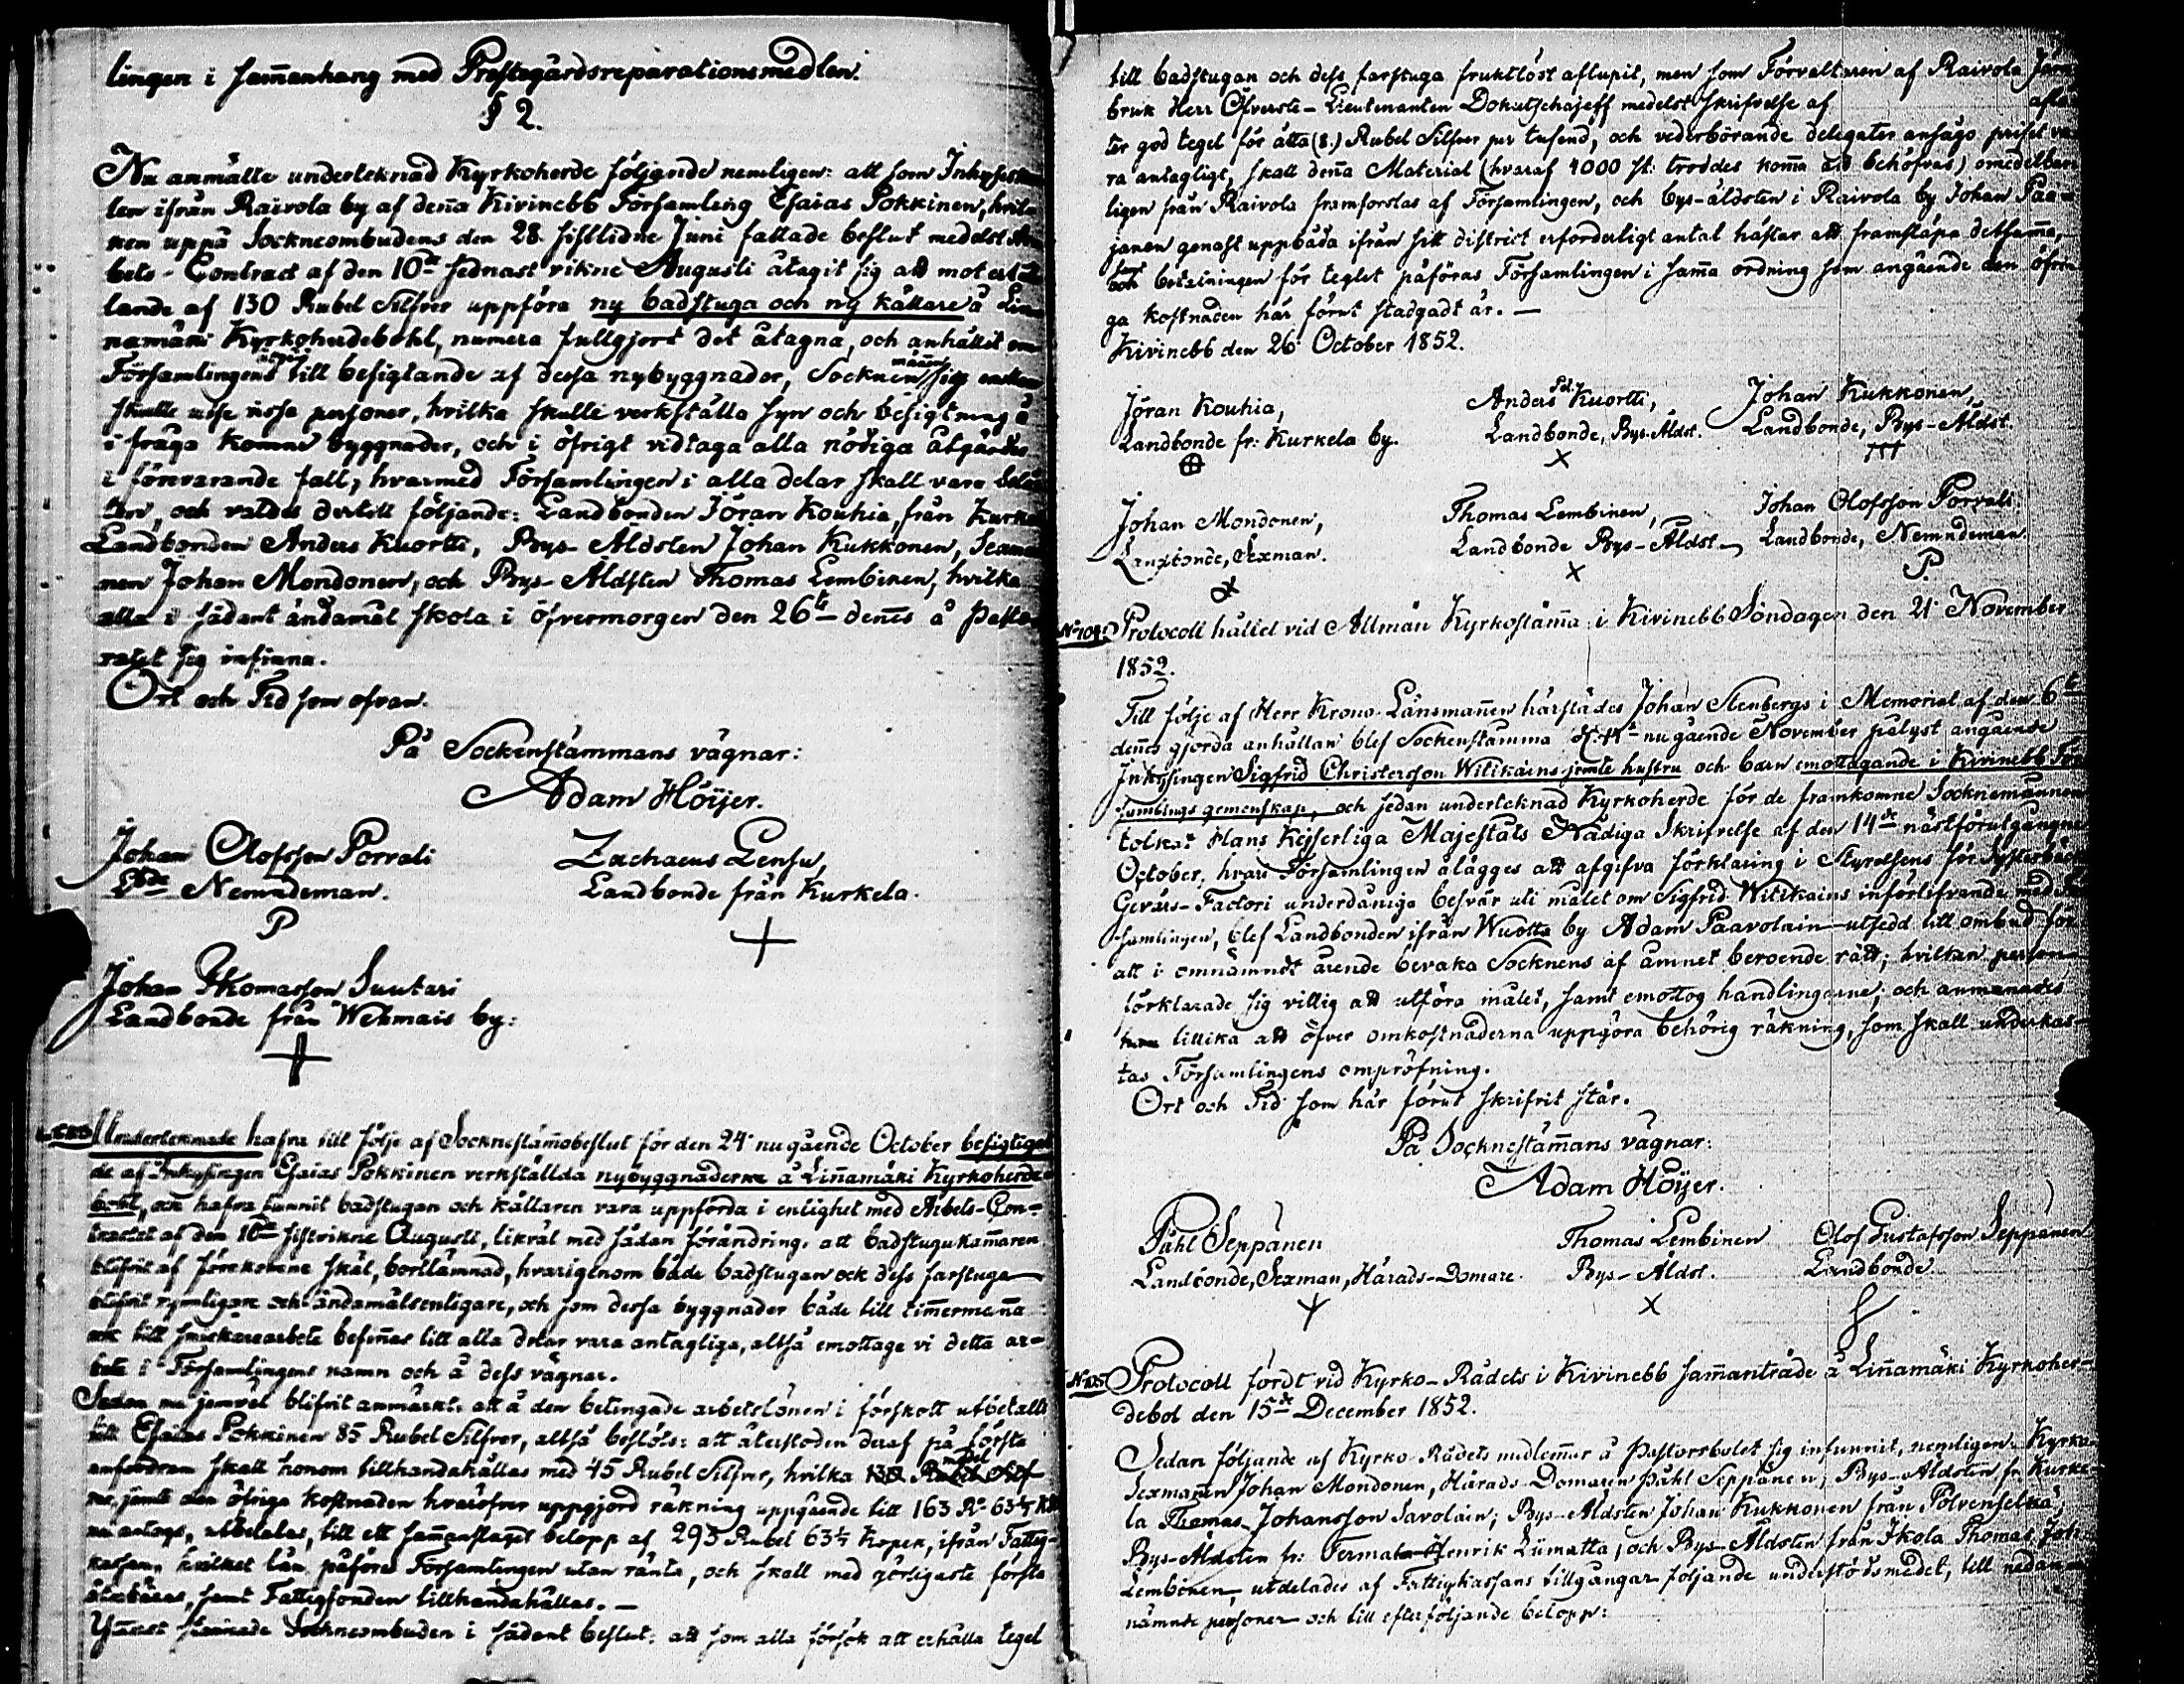 lingen i sam̄anhang med Prestegårdsreparationsmedlen.
§ 2.
Nu anmälte undertecknad Kyrkoherde följande nemligen: att som Inhyses
len ifrån Raivola by af den̄a Kivinebb Församling Esaias Pokkinen, hvil
ken uppå Socknеombudens den 28. sistlidne Juni fattade beslut medelst Ar
bets-Contract af den 10de sednast vikne Augusti åtagit sig att mot er
lande af 130 Rubel Silfver uppföra ny badstuga och ny källare å Lin
namäki Kyrkoherdebohl, numera fullgjort det åtagna, och anhållit om
Församlingens åtgärd till besigtande af dessa nybyggnader,
skulle vissa personer, hvilka skulle verkställa syn och besigtning å
i fråga komne byggnader, och i öfrigt vidtaga alla nödiga åtgärder
i förevarande fall, hvarmed Församlingen i alla delar skall vara belå
ten, och valdes dertill följande: Landbonden Jöran Kouhia, från Kurke
Landbonden Anders Kuortti, Bys-Äldsten Johan Kukkonen, Sexman
nen Johan Mondonen, och Bys-Äldsten Thomas Lembinen, hvilka
alla i sådant ändamål skola i öfvermorgon den 26te den̄es å Pasto
ratet sig infinna.
Ort och Tid som ofvan.
På Sockenstämmans vägnar:
Adam Höijer.
Johan Olofsson Porvali
Lbde Nemndeman.
P
Zachaeus Lensu,
Landbonde från Kurkela.
Johan Thomasson Suutari
Landbonde från Wehmais by:
Undertecknade hafva till följe af Socknestäm̄obeslut för den 24. nu gående October besigtiga
de af Inhysingen Esaias Pokkinen verkställda nybyggnaderne å Lin̄amäki Kyrkoherde
bohl, och hafva funnit badstugan och källaren vara uppförda i enlighet med Arbets-Con-
tractet af den 10de sistvikne Augusti, likväl med sådan förändring, att badstugukam̄aren
blifvit af förekomne skäl, bortlämnad, hvarigenom både badstugan ock dess farstuga
blifvit rymligare och ändamålsenligare, och som dessa byggnader både till tim̄erman̄a
och till snickarearbete befin̄as till alla delar vara antagliga, altså emottage vi detta ar-
bete i Församlingens namn och å dess vägnar.
Sedan nu jemväl blifvit anmärkt: att å den betingade arbetslönen i förskott utbetalts
till Esaias Pokkinen 85 Rubel Silfver, altså beslöts: att återstoden deraf på första
anfordran skall honom tillhandahållas med 45 Rubel Silfver, hvilka 130 Rubel Silf-
ver jemte den öfriga kostnaden hvaröfver uppgjord räkning uppgående till 163 Ro 63½ K
nu antogs, utbetalas, till ett sam̄anstämt belopp af 293 Rubel 63½ Kopek, ifrån Fattig-
kassan, hvilket lån påföres Församlingen utan ränta, och skall med görligaste första
återbäras, samt Fattigfonden tillhandahållas. —
Ytterst stannade Sockneombuden i sådant beslut: att som alla försök att erhålla tegel
till badstugan och dess farstuga fruktlöst aflupit, men som Förvaltaren af Raivola Jern
bruk Herr Öfverste-Lieutenanten Dokutschajeff medelst skrifvelse af aflå
ter god tegel för åtta (8.) Rubel Silfver per tusend, och vederbörande delegater ansågo priset va
ra antagligt, skall den̄a Material (hvaraf 4000 st. troddes kom̄a att behöfvas) omedelbar
ligen från Raivola framforslas af Församlingen, och bys-äldsten i Raivola by Johan Paa-
janen genast uppbåda ifrån sitt district erforderligt antal hästar att framsläpa detsam̄a,
samt betalningen för teglet påföras Församlingen i sam̄a ordning som angående den öfri
ga kostnaden här förut stadgadt är. —
Kivinebb den 26. October 1852.
Jöran Kouhia,
Landbonde fr: Kurkela by.
Anders Kuortti,
Landbonde, Bys-Äldst.
X
Johan Kukkonen,
Landbonde, Bys-Äldst.
Johan Mondonen,
Landbonde, Sexman.
Thomas Lembinen,
Landbonde Bys-Äldst
X
Johan Olofsson Porvali
Landbonde, Nemndeman.
P.
No 104. Protocoll hållet vid Allmän Kyrkostäm̄a i Kivinebb Söndagen den 21. November
1852.
Till följe af Herr Krono-Länsman̄en härstädes Johan Stenbergs i Memorial af den 6te
den̄es gjorda anhållan blef Sockenstämma nu gående November pålyst angående
Inhysingen Sigfrid Christersson Witikains jemte hustru och barn emottagande i Kivinebb För
samlings gemenskap, och sedan undertecknad Kyrkoherde för de framkomne Socknemännen
tolkat Hans Kejserliga Majestäts Nådiga Skrifvelse af den 14de nästförutgångne
October, hvari Församlingen ålägges att afgifva förklaring i Styrelsens för Systerbäck
Gevärs-Factori underdåniga besvär uti målet om Sigfrid Witikains införlifvande med För
samlingen, blef Landbonden ifrån Wuotta by Adam Paavolain utsedd till ombud för
att i omnämndt ärende bevaka Socknens af ämnet beroende rätt; hvilken person
förklarade sig villig att utföra målet, samt emottog handlingarne; och anmanades
tillika att öfver omkostnaderna uppgöra behörig räkning, som skall underkas-
tas Församlingens ompröfning.
Ort och Tid som här förut skrifvit står.
På Socknestäm̄ans vägnar:
Adam Höijer.
Påhl Seppänen
Landbonde, Sexman, Härads-Domare.
Thomas Lembinen
Bys-Äldst.
X
Olof Gustafsson Seppänen
Landbonde
No 105 Protocoll fördt vid Kyrko-Rådets i Kivinebb sam̄anträde å Lin̄amäki Kyrkoher-
debol den 15de December 1852.
Sedan följande af Kyrko-Rådets medlem̄ar å Pastorsbolet sig infunnit, nemligen: Kyrko
Sexmanen Johan Mondonen, Härads-Domaren Påhl Seppänen; Bys-Äldsten fr. Kurke-
la Thomas Johansson Savolain; Bys-Äldsten Johan Kukkonen från Polvenselkä;
Bys-Äldsten fr: Termala Henrik Liimatta, och Bys-Äldsten från Ikola Thomas Joh:
Lembinen, utdelades af Fattigkassans tillgångar följande understödsmedel, till nedan
nämnde personer och till efterföljande belopp: